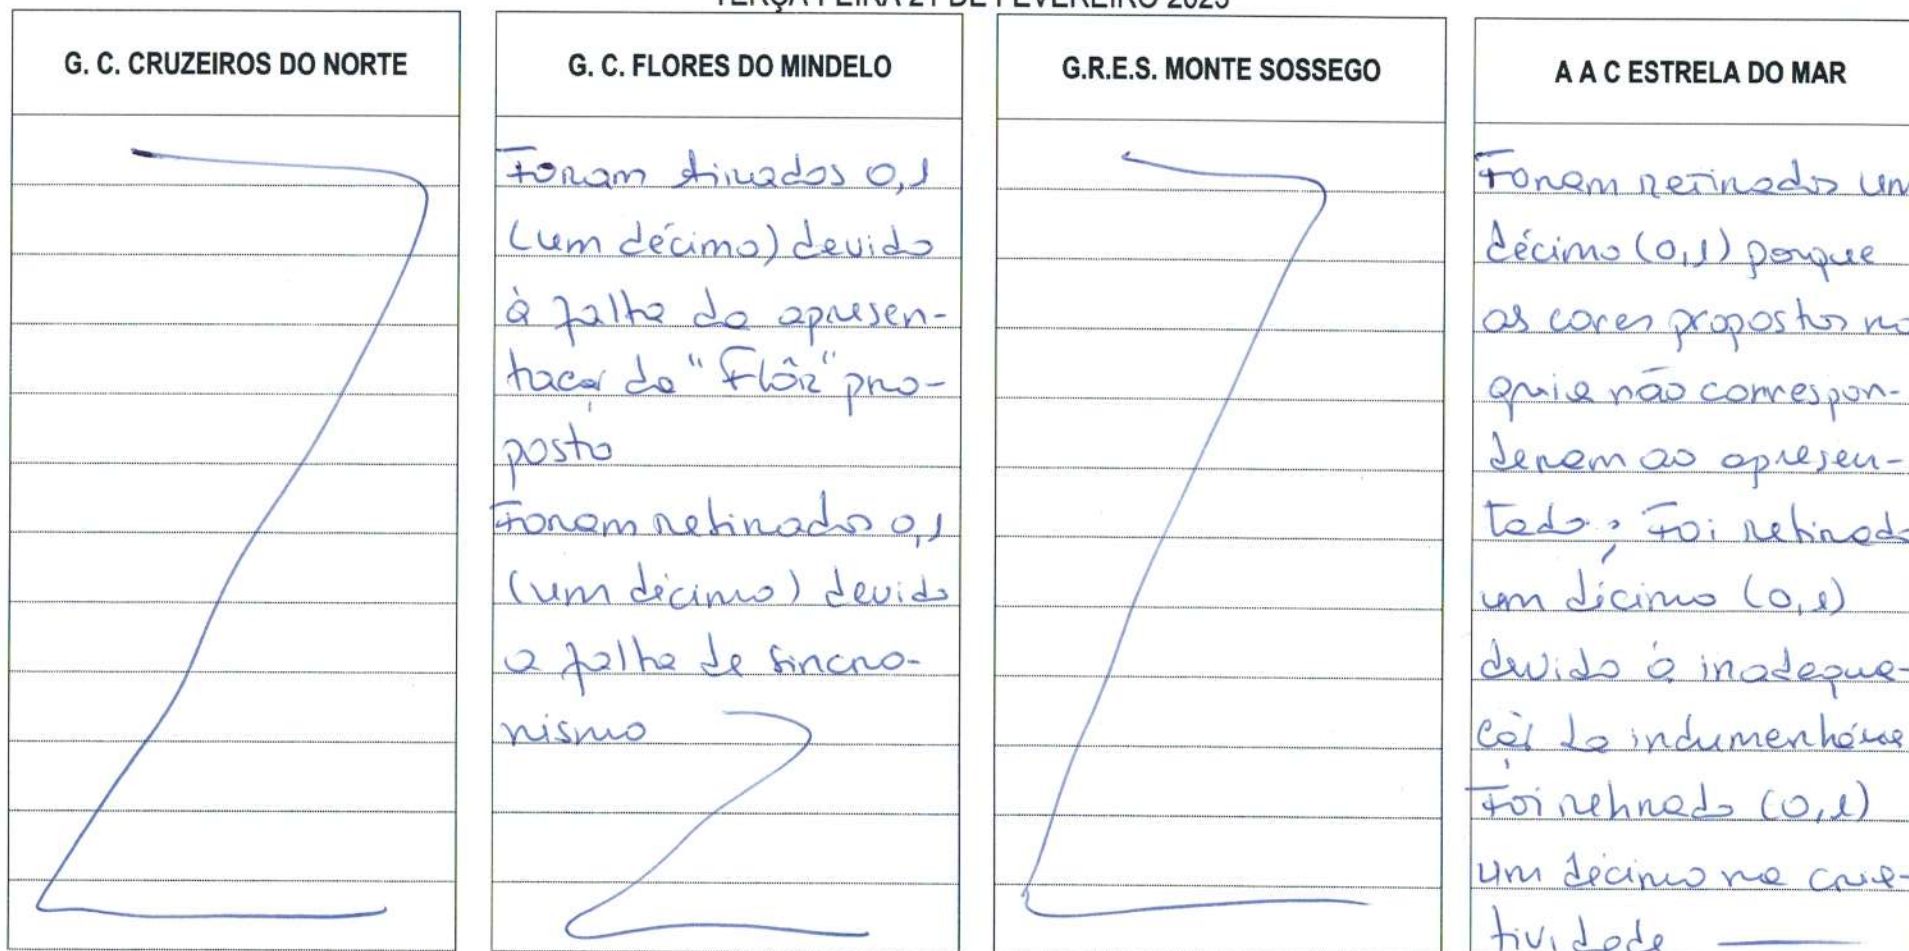 TERÇA FEIRA 21 DE FEVEREIRO 2023
G. C. CRUZEIROS DO NORTE
G. C. FLORES DO MINDELO
Foram tirados 0,1
(um décimo) devido
à falha da apresen-
tação da "Flôr" pro-
posta
Foram retirados 0,1
(um décimo) devido
a falha de sincro-
nismo
G.R.E.S. MONTE SOSSEGO
A A C ESTRELA DO MAR
Foram retirados um
décimo (0,1) porque
as cores propostas no
guia não correspon-
deram ao apresen-
tado; Foi retirado
um décimo (0,1)
devido à inadequa-
ção da indumentária
Foi retirado (0,1)
um décimo na cria-
tividade